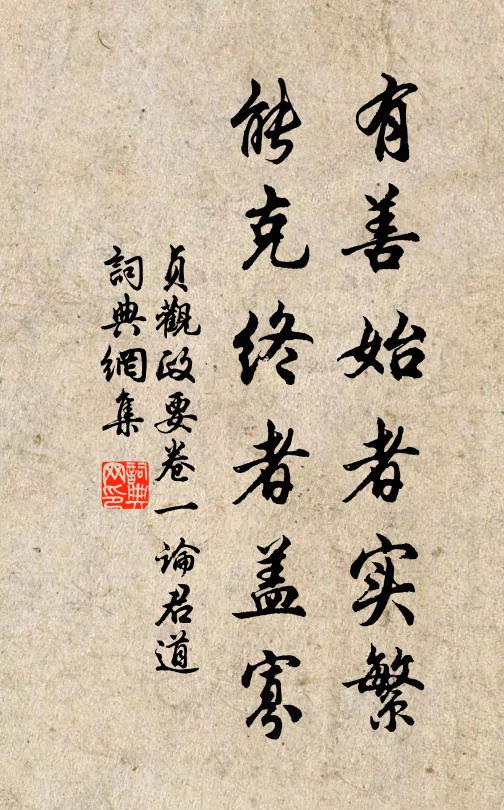 有善始者实繁
能克终者盖寡
貞觀政要卷一論君道
詞典網集
詞典网印